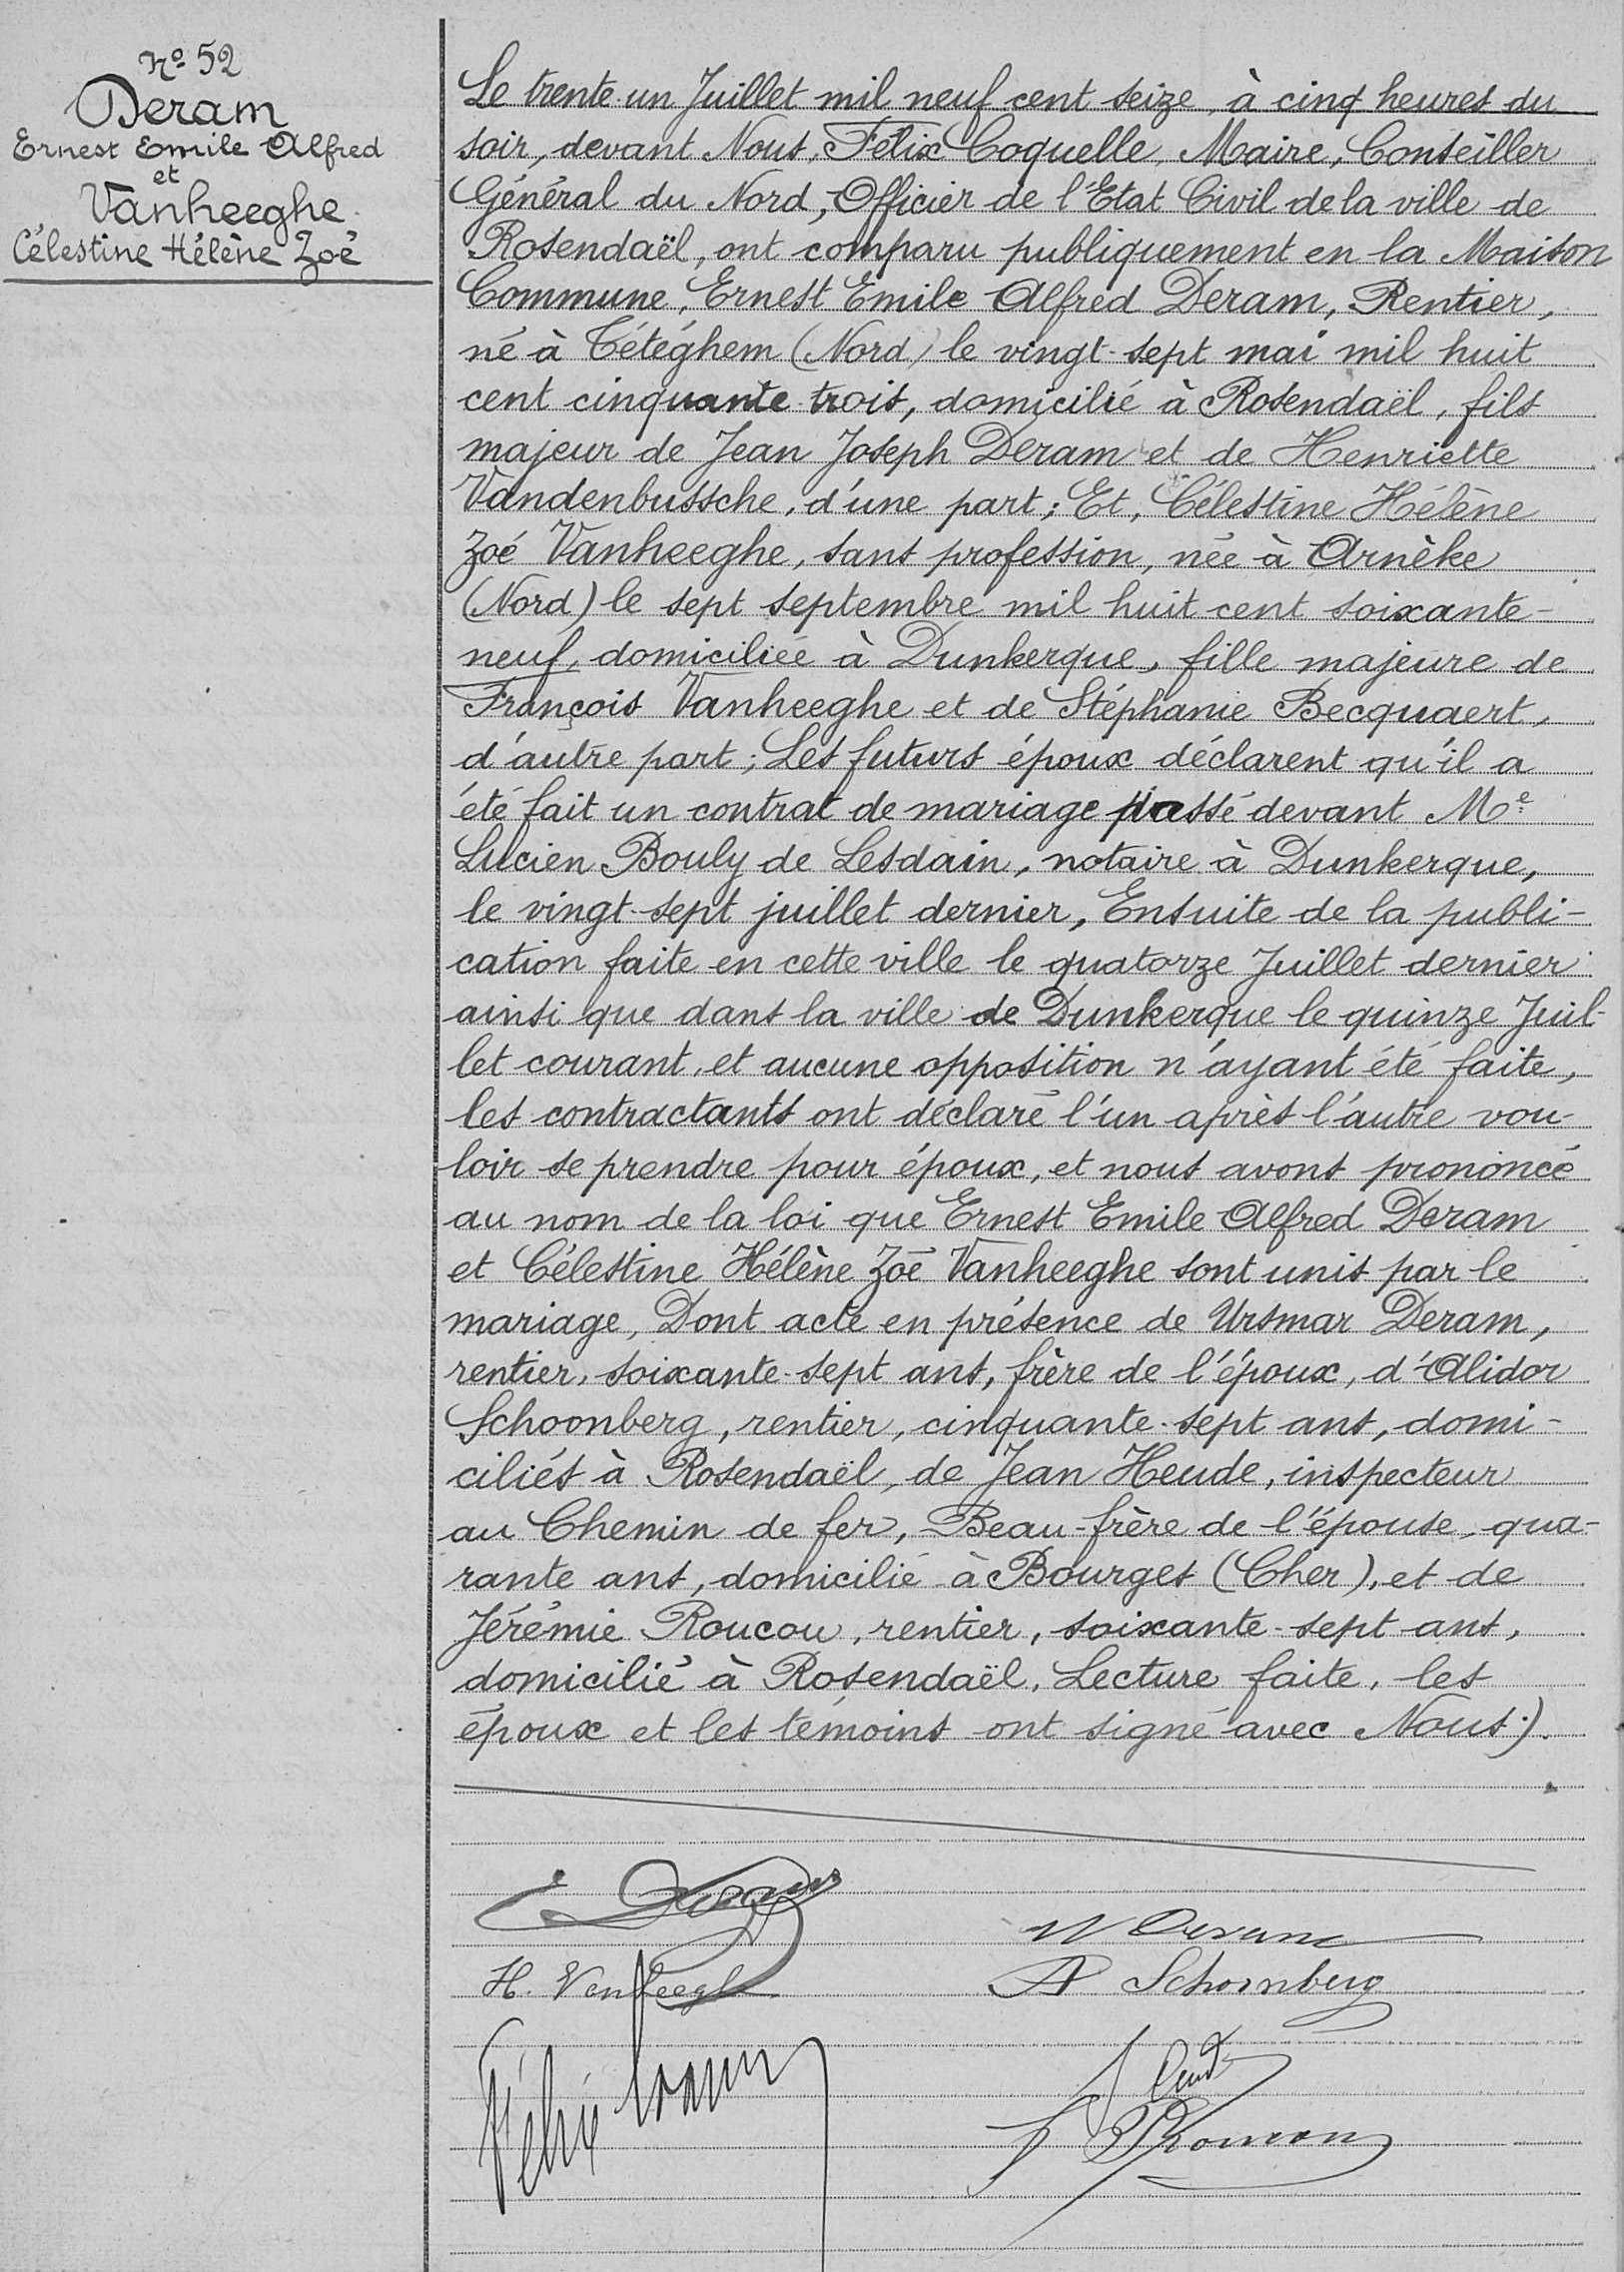 Nº 52
Deram
Ernest Emile Alfred
et
Vanheeghe
Célestine Hélène Zoé
Le trente un Juillet mil neuf cent seize, à cinq heures du
soir, devant Nous, Félix Coquelle, Maire, Conseiller
Général du Nord, Officier de l'Etat Civil de la ville de
Rosendaël, ont comparu publiquement en la Maison
Commune, Ernest Emile Alfred Deram, Rentier,
né à Tétéghem (Nord) le vingt-sept mai mil huit
cent cinquante trois, domicilié à Rosendaël, fils
majeur de Jean Joseph Deram et de Henriette
Vandenbussche, d'une part; Et, Célestine Hélène
Zoé Vanheeghe, sans profession, née à Arnèke
(Nord) le sept septembre mil huit cent soixante-
neuf, domiciliée à Dunkerque, fille majeure de
François Vanheeghe et de Stéphanie Becquaert,
d'autre part; Les futurs époux déclarent qu'il a
été fait un contrat de mariage passé devant Me
Lucien Bouly de Lesdain, notaire à Dunkerque,
le vingt-sept juillet dernier, Ensuite de la publi-
cation faite en cette ville le quatorze Juillet dernier
ainsi que dans la ville de Dunkerque le quinze Juil-
let courant, et aucune opposition n'ayant été faite,
les contractants ont déclaré l'un après l'autre vou-
loir se prendre pour époux, et nous avons prononcé
au nom de la loi que Ernest Emile Alfred Deram
et Célestine Hélène Zoé Vanheeghe sont unis par le
mariage, Dont acte en présence de Ursmar Deram,
rentier, soixante-sept ans, frère de l'époux, d'Alidor
Schoonberg, rentier, cinquante-sept ans, domi-
ciliés à Rosendaël, de Jean Heude, inspecteur
au Chemin de fer, Beau-frère de l'épouse, qua-
rante ans, domicilié à Bourges (Cher), et de
Jérémie Roucou, rentier, soixante-sept ans,
domicilié à Rosendaël, Lecture faite, les
époux et les témoins ont signé avec Nous.)
E Deram
U Deram
H. Vanheeghe
A Schoonberg
J Heude
Félix
J Roucou